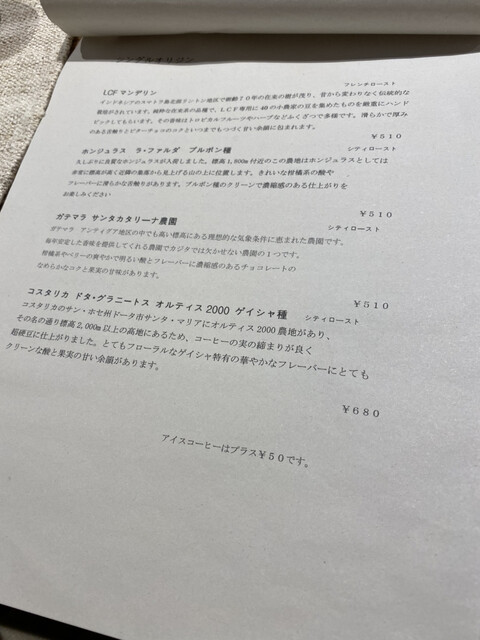 シングルオリジン
LCF マンデリン
フレンチロースト
インドネシアのスマトラ島北部リントン地区で樹齢70年の在来の樹が茂り、昔から変わりなく伝統的な
栽培がされています。純粋な在来系の品種で、LCF専用に40の小農家の豆を集めたものを緻密にハンド
ピックしてもらいます。その香味はトロピカルフルーツやハーブなどふくざつで多様です。滑らかで厚み
のある舌触りとビターチョコのコクといつまでもつづく甘い余韻に包まれます。
¥510
ホンジュラス ラ・ファルダ ブルボン種
シティロースト
久しぶりに良質なホンジュラスが入荷しました。標高1,800m付近のこの農地はホンジュラスとしては
非常に標高が高く近隣の集落から見上げる山の上に位置します。きれいな柑橘系の酸や
フレーバーに滑らかな舌触りがあります。ブルボン種のクリーンで濃縮感のある仕上がりを
お楽しみください
¥510
ガテマラ サンタカタリーナ農園
シティロースト
ガテマラ アンティグア地区の中でも高い標高にある理想的な気象条件に恵まれた農園です。
毎年安定した香味を提供してくれる農園でカジタでは欠かせない農園の1つです。
柑橘系やベリーの爽やかで明るい酸とフレーバーに濃縮感のあるチョコレートの
なめらかなコクと果実の甘味があります。
¥510
コスタリカ ドタ・グラニートス オルティス2000 ゲイシャ種
シティロースト
コスタリカのサン・ホセ州ドータ市サンタ・マリアにオルティス2000農地があり、
その名の通り標高2,000m以上の高地にあるため、コーヒーの実の締まりが良く
超硬豆に仕上がりました。とてもフローラルなゲイシャ特有の華やかなフレーバーにとても
クリーンな酸と果実の甘い余韻があります。
¥680
アイスコーヒーはプラス¥50です。